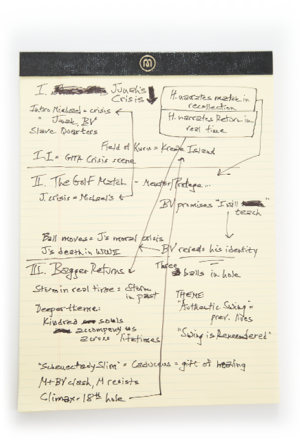 I. Junah's
Crisis
Intro Michael = crisis
" Junah, BV
Slave Quarters
H. narrates match in
recollection
H. narrates Return in
real time
Field of Kuru = Krewe Island
I-I = GITA Crisis scene
II. The Golf Match -
J. crisis = Michael's
BV promises "I will
teach
Ball moves = J's moral crisis
J's death in WWII
BV reveals his identity
Three
balls in hole
III. Bagger Returns
Storm in real time = Storm
in past
Deeper theme:
Kindred souls
accompany us
across lifetimes
THEME:
"Authentic Swing" =
prev. lifes
"Swing is Remembered"
"Schenectady Slim" = Caduceus = gift of healing
M + BV clash, M resists
Climax - 18th hole